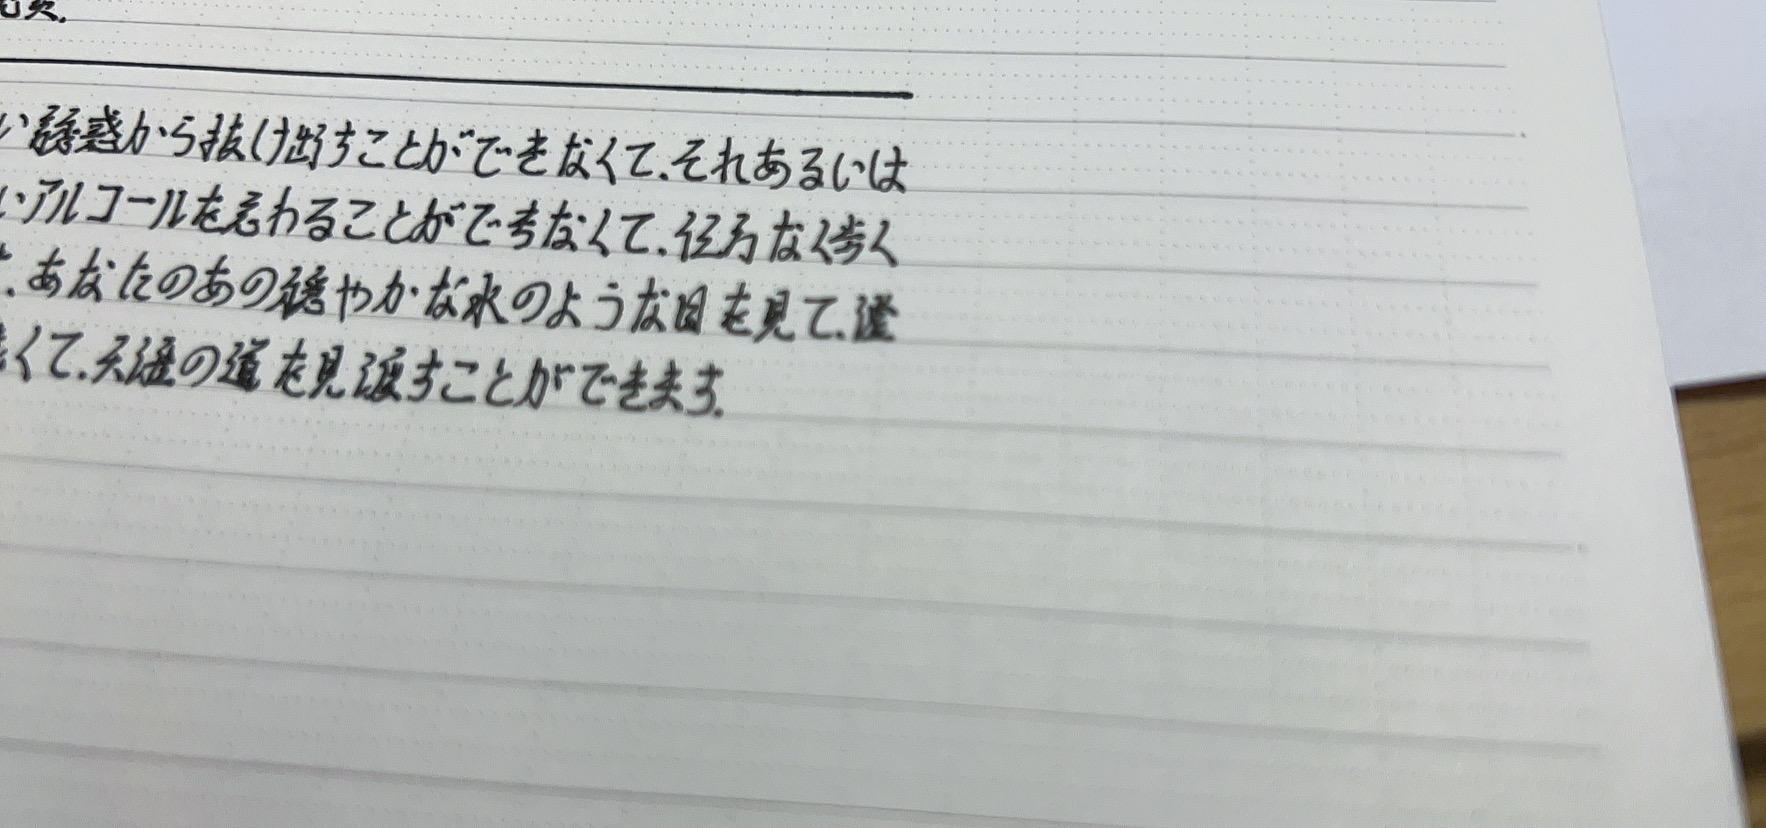 い誘惑から抜け出すことができなくて.それあるいは
いアルコールを忘わることができなくて.仕方なく歩く
.あなたのあの穏やかな水のような目を見て.澄
くて.天涯の道を見渡すことができます.